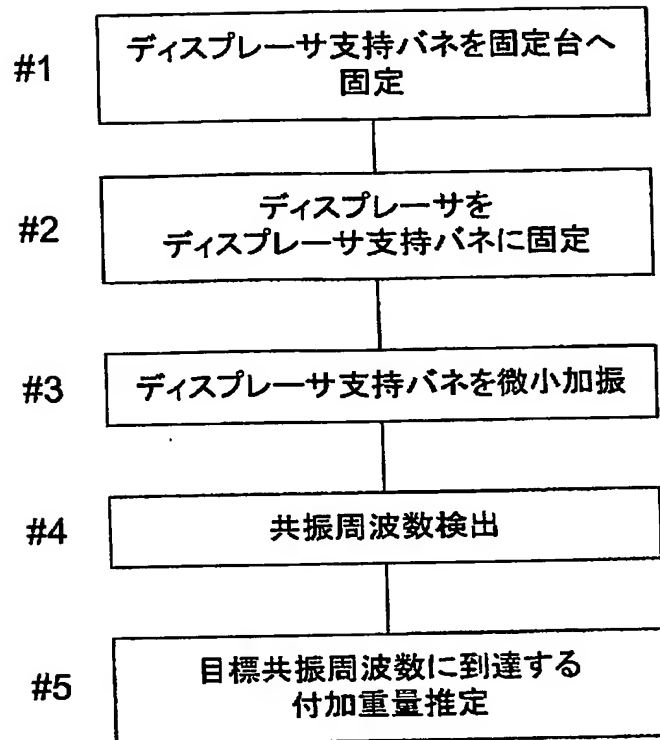 #1
ディスプレーサ支持バネを固定台へ
固定
#2
ディスプレーサを
ディスプレーサ支持バネに固定
#3
ディスプレーサ支持バネを微小加振
#4
共振周波数検出
#5
目標共振周波数に到達する
付加重量推定